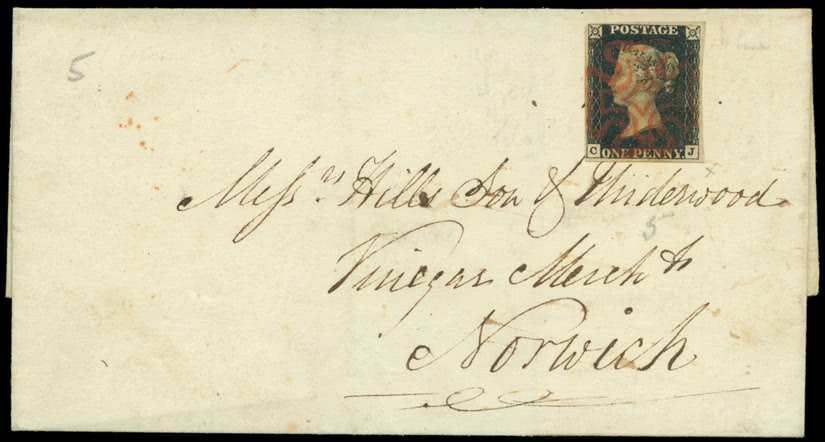 5
POSTAGE
C J
ONE PENNY
Messrs. Hills Son & Underwood
5
Vinegar Merchts
Norwich